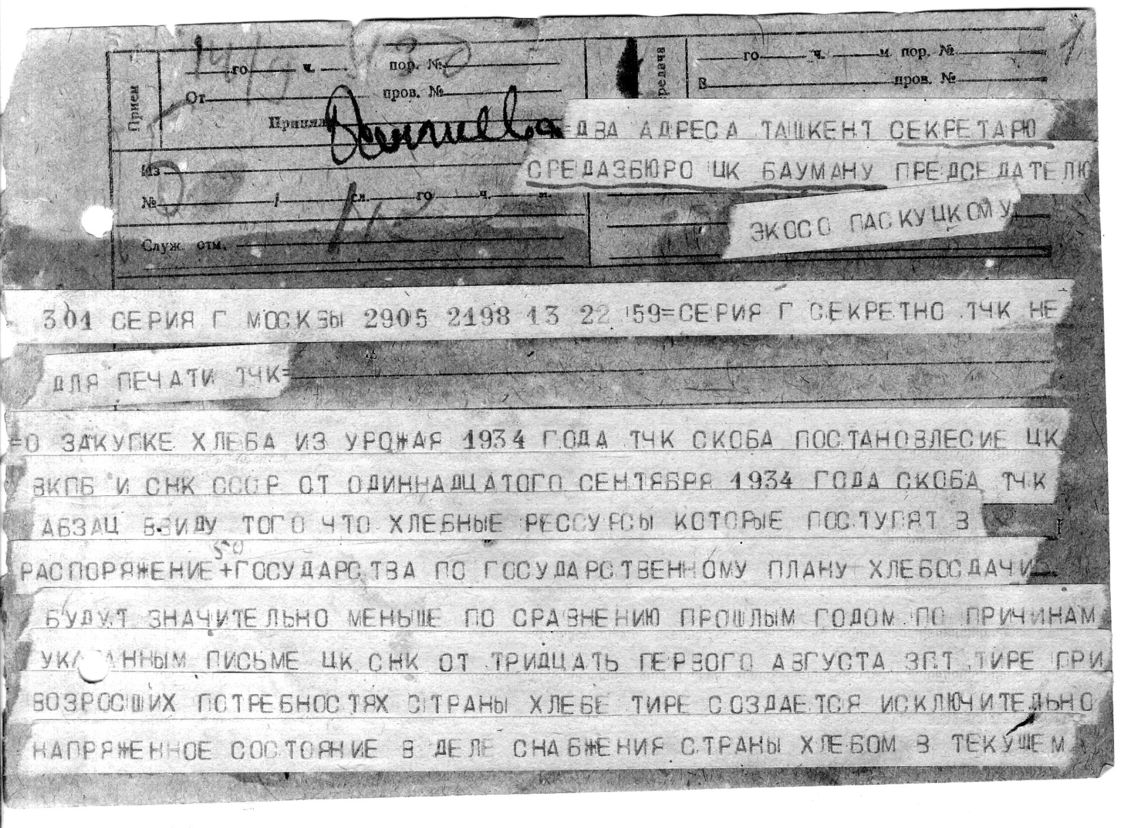 14/9 430
го ч. пор. №
Прием
От пров. №
Принял
го ч. м. пор. №
В пров. №
=ДВА АДРЕСА ТАШКЕНТ СЕКРЕТАРЮ
СРЕДАЗБЮРО ЦК БАУМАНУ ПРЕДСЕДАТЕЛЮ
ЭКОСО ПАСКУЦКОМУ
Из
№ / сл. го ч. м.
Служ. отм.
301 СЕРИЯ Г МОСКВЫ 2905 2198 13 22 59=СЕРИЯ Г СЕКРЕТНО ТЧК НЕ
ДЛЯ ПЕЧАТИ ТЧК=
=О ЗАКУПКЕ ХЛЕБА ИЗ УРОЖАЯ 1934 ГОДА ТЧК СКОБА ПОСТАНОВЛЕСИЕ ЦК
ВКПБ И СНК СССР ОТ ОДИННАДЦАТОГО СЕНТЯБРЯ 1934 ГОДА СКОБА ТЧК
АБЗАЦ ВВИДУ ТОГО ЧТО ХЛЕБНЫЕ РЕССУРСЫ КОТОРЫЕ ПОСТУПЯТ В
50
РАСПОРЯЖЕНИЕ +ГОСУДАРСТВА ПО ГОСУДАРСТВЕННОМУ ПЛАНУ ХЛЕБОСДАЧИ
БУДУТ ЗНАЧИТЕЛЬНО МЕНЬШЕ ПО СРАВНЕНИЮ ПРОШЛЫМ ГОДОМ ПО ПРИЧИНАМ
УКАЗАННЫМ ПИСЬМЕ ЦК СНК ОТ ТРИДЦАТЬ ПЕРВОГО АВГУСТА ЗПТ ТИРЕ ПРИ
ВОЗРОСШИХ ПОТРЕБНОСТЯХ СТРАНЫ ХЛЕБЕ ТИРЕ СОЗДАЕТСЯ ИСКЛЮЧИТЕЛЬНО
НАПРЯЖЕННОЕ СОСТОЯНИЕ В ДЕЛЕ СНАБЖЕНИЯ СТРАНЫ ХЛЕБОМ В ТЕКУЩЕМ